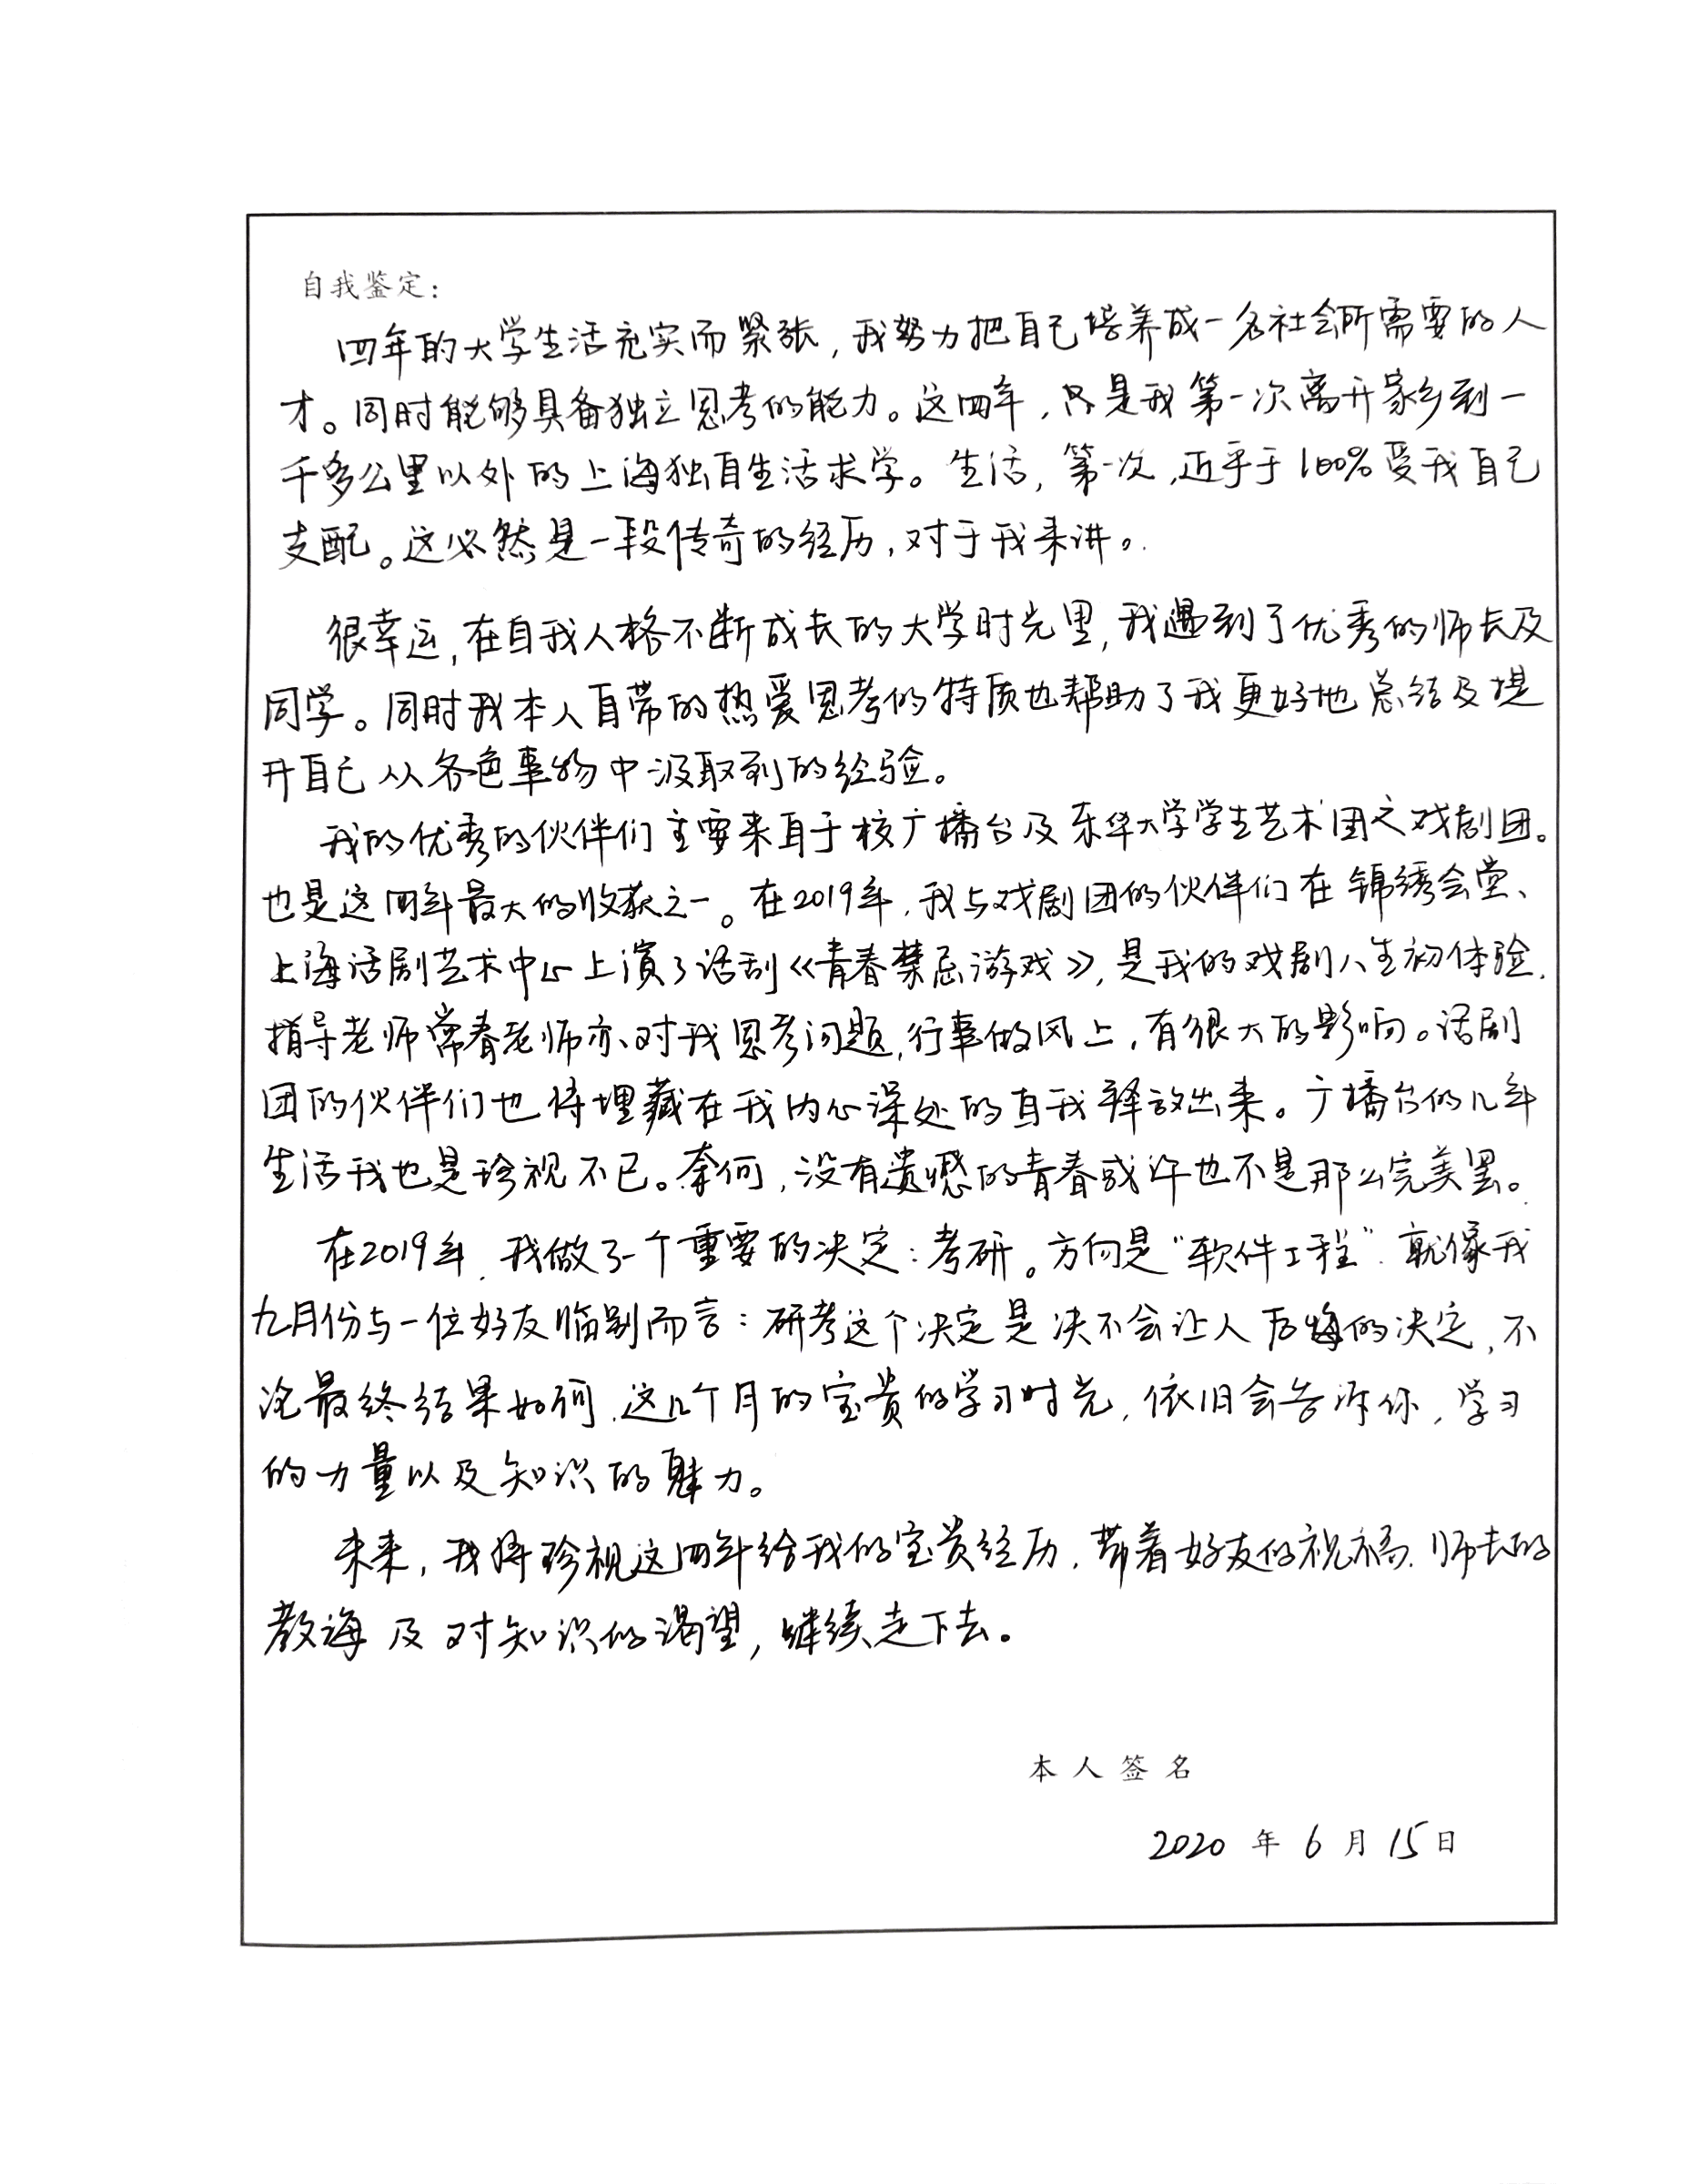 自我鉴定：
四年的大学生活充实而紧张，我努力把自己培养成一名社会所需要的人
才。同时能够具备独立思考的能力。这四年，只是我第一次离开家乡到一
千多公里以外的上海独自生活求学。生活，第一次，近乎于100%受我自己
支配。这必然是一段传奇的经历，对于我来讲。
很幸运，在自我人格不断成长的大学时光里，我遇到了优秀的师长及
同学。同时我本人自带的热爱思考的特质也帮助了我更好地总结及提
升自己从各色事物中汲取到的经验。
我的优秀的伙伴们主要来自于校广播台及东华大学学生艺术团之戏剧团。
也是这四年最大的收获之一。在2019年，我与戏剧团的伙伴们在锦绣会堂、
上海话剧艺术中心上演了话剧《青春禁忌游戏》，是我的戏剧人生初体验.
指导老师常春老师亦、对我思考问题，行事做风上，有很大的影响。话剧
团的伙伴们也将埋藏在我内心深处的自我释放出来。广播台的几年
生活我也是珍视不已。奈何，没有遗憾的青春或许也不是那么完美罢。
在2019年，我做了一个重要的决定：考研。方向是“软件工程”.就像我
九月份与一位好友临别而言：研考这个决定是决不会让人后悔的决定，不
论最终结果如何，这几个月的宝贵的学习时光，依旧会告诉你，学习
的力量以及知识的魅力。
未来，我将珍视这四年给我的宝贵经历，带着好友的祝福、师长的
教诲及对知识的渴望，继续走下去。
本人签名
2020 年 6 月 15 日